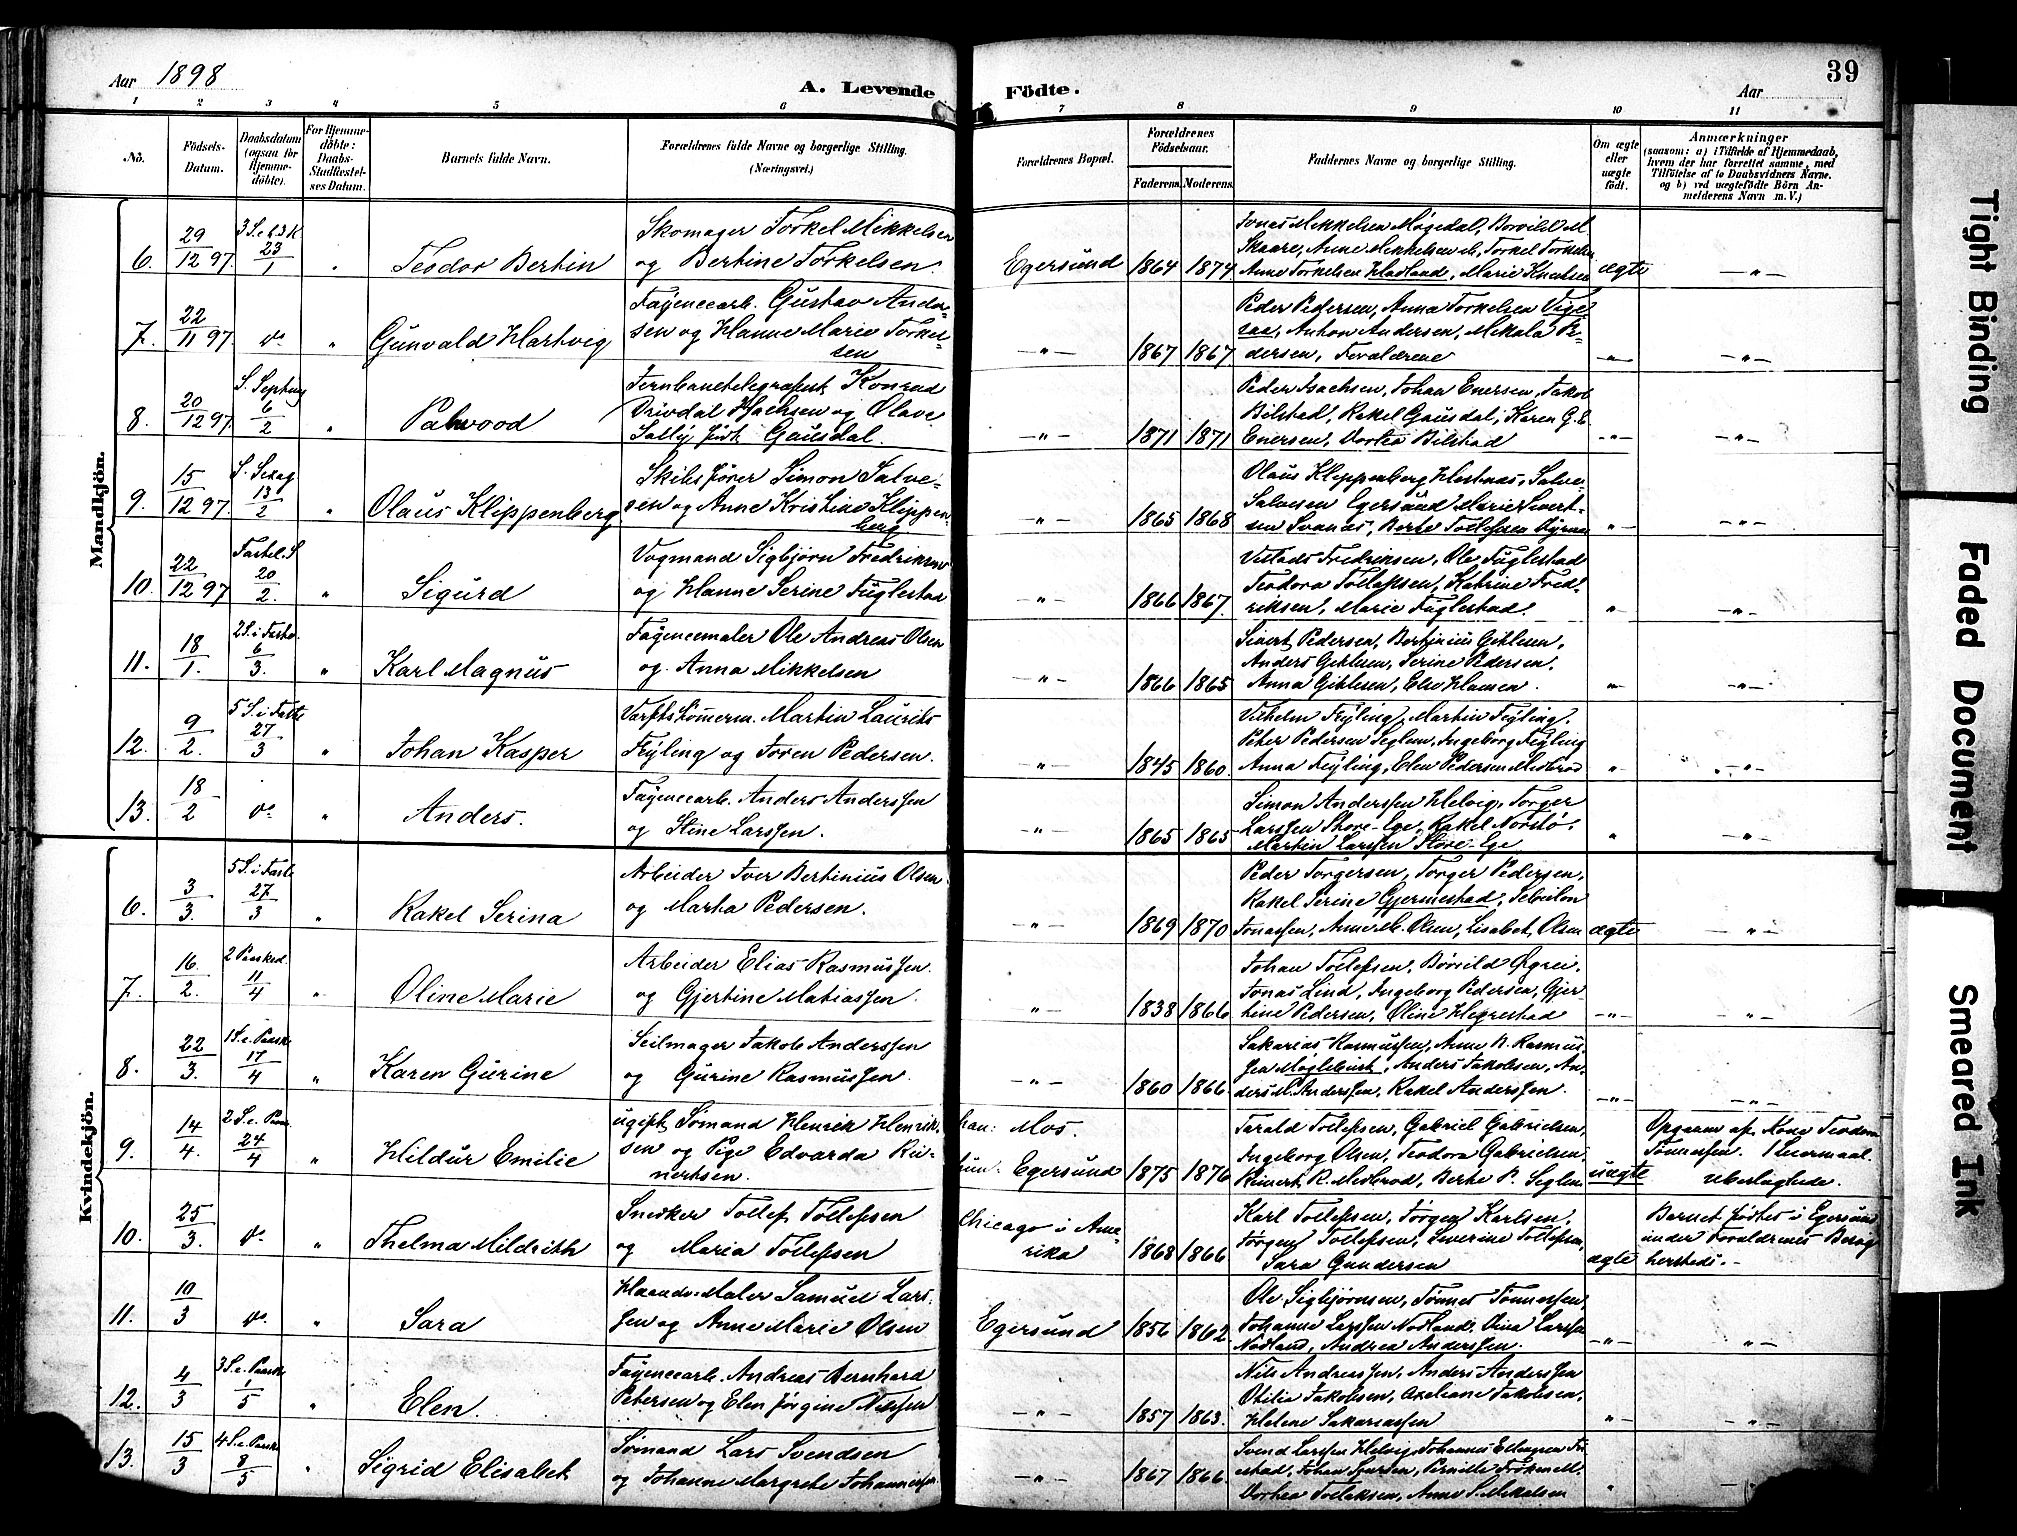 Aar 1898
A. Levende Födte.
39
Aar
1 2 3 4 5 6 7 8 9 10 11
No.
Födsels-Datum.
Daabsdatum (ogsaa for Hjemmedöbte).
For Hjemmedöbte: Daabs-Stadfæstelses Datum.
Barnets fulde Navn.
Forældrenes fulde Navne og borgerlige Stilling.
(Næringsvei.)
Forældrenes Bopæl.
Forældrenes Födselsaar.
Faderens. Moderens.
Faddernes Navne og borgerlige Stilling.
Om ægte eller uægte födt.
Anmærkninger
(saasom: a) i Tilfælde af Hjemmedaab,
hvem der har forrettet samme, med
Tilföielse af to Daabsvidners Navne.
og b) ved uægtefödte Börn An-
melderens Navn m. V.)
Mandkjön.
6. 29/12 97. 3 S. e. h. 3 K. 23/1 " Teodor Bertin
Skomager Torkel Mikkelsen
og Bertine Torkelsen.
Egersund 1864 1874
Jonas Mikkelsen Møgedal, Borvild M
Skaare, Anne Mikkelsen M, Torkel Torkelsen
Anne Torkelsen Hadland, Marie Knutsen
ægte — " —
7. 22/11 97. do " Gunvald Hartvig
Fayencearb. Gustav Ander-
sen og Hanne Marie Torkel-
sen
— " — 1867 1867
Peder Pedersen, Anna Torkelsen Vige-
saa, Anton Andersen, Mikala Pe-
dersen, Forældrene
— " — — " —
8. 20/12 97 S. Septuag 6/2 " Palwood
Jernbanetelegrafist Konrad
Drivdal Isachsen og Olave
Sally født Gausdal.
— " — 1871 1871
Peder Isachsen, Johan Enersen, Jakob
Bilstad, Rakel Gausdal, Karen G. E.
Enersen, Dortea Bilstad
— " — — " —
9. 15/12 97 S. Sexag 13/2 " Olaus Klippenberg
Skibsfører Simon Salve-
sen og Anne Kristine Klippen-
berg
— " — 1865 1868
Olaus Klippenberg Hestnes, Salve
Salvesen Egersund, Marie Sivert-
sen Svanes, Berte Tollefsen
" — " —
10. 22/12 97 Fastel. S 20/2. " Sigurd
Vogmand Sigbjørn Fredriksen
og Hanne Serine Fuglestad
— " — 1866 1867.
Fredriksen, Ole Fuglestad
Teodora Tollaksen, Katrine Fred-
riksen, Marie Fuglestad.
" — " —
11. 18/1. 2 S. i Faste. 6/3. " Karl Magnus
Fayencemaler Ole Andreas Olsen
og Anna Mikkelsen
— " — 1866 1865
Sivert Pedersen, Bertinius Gihlesen,
Anders Gihlesen, Serine Pedersen,
Anna Gihlesen, Else Hansen.
" — " —
12. 9/2. 5 S. i Faste 27/3 " Johan Kasper
Værftstømerm. Martin Laurits
Feyling og Joren Pedersen.
" 1845 1860.
Vilhelm Feyling, Martin Feyling,
Peter Pedersen Seglem, Ingeborg Feyling
Anna Feyling, Elen Pedersen Midbrød
" — " —
13. 18/2 do " Anders.
Fayencearb. Anders Anderssen
og Stine Larssen.
— " — 1865 1865
Simon Anderssen Helvig, Torger
Larssen Store-Ege, Rakel Norstø,
Martin Larssen Store-Ege
" — " —
Kvindekjön.
6. 3/3. 5 S. i Faste 27/3 " Rakel Serina
Arbeider Iver Bertinius Olsen
og Marta Pedersen.
— " — 1869 1870
Peder Torgersen, Torger Pedersen,
Rakel Serine Gjermestad, Sebulon
Jonassen, Anne M. Olsen, Lisabet Olsen
ægte — " —
7. 16/2. 2 Paasked. 11/4 " Oline Marie
Arbeider Elias Rasmussen.
og Gjertine Matiassen.
" 1838 1866
Johan Tollefsen, Børvild Øgrei,
Jonas Lind, Ingeborg Pedersen, Gjer-
tine Pedersen, Oline Hegrestad
— " — "
8. 22/3. 1 S. e. Paaske 17/4 " Karen Gurine
Seilmager Jakob Anderssen
og Gurine Rasmussen.
— " — 1860 1866.
Sakarias Rasmussen, Anne B. Rasmus-
sen Møglebust, Anders Jakobsen, An-
ders M. Anderssen, Rakel Anderssen.
— " — — " —
9. 14/4. 2 S. e. Paas. 24/4 " Hildur Emilie
ugift Sømand Henrik Henrik-
sen og Pige Edvarda Rei-
nertsen.
han: Mos.
hun: Egersund 1875 1876
Tarald Tollefsen, Gabriel Gabrielsen,
Ingeborg Olsen, Teodora Gabrielsen,
Reinert R. Midbrød, Berte P. Seglem
uægte
Opgaave af Kone Teodora
Tønnessen. Leiermaal.
ubeslægtede.
10. 25/3. do " Thelma Mildrith
Snedker Tollef Tollefsen
og Maria Tollefsen
Chicago i Ame-
rika 1868 1866
Karl Tollefsen, Jørgen Karlsen,
Jørgen Tollefsen, Severine Tollefsen,
Sara Gundersen
ægte
Barnet fødtes i Egersund
under Forældrenes Besøg
hersteds. -
11. 10/3 do " Sara
Haandv. Maler Samuel Lars-
sen og Anne Marie Olsen
Egersund 1856 1862.
Ole Sigbjørnsen, Tønnes Tønnessen,
Johanne Larssen Nodland, Dina Larssen
Nodland, Andrea Anderssen.
— " — "
12. 4/3 3 S. e. Paaske 1/5 " Elen.
Fayencearb. Andreas Bernhard
Petersen og Elen Jørgine Nilssen
— " — 1857 1863.
Nils Andreassen, Anders Anderssen
Otilia Jakobsen, Axeliane Jakobsen,
Helene Sakariassen
" — " —
13. 15/3 4 S. e. Paaske 8/5 " Sigrid Elisabet
Sømand Lars Svendsen
og Johanne Margrete Johannessen
— " — 1867 1866
Svend Larssen Helvig, Johannes
Pernille
Dortea Tollaksen, Anne S. Mikalsen
"
Tight Binding
Faded Document
Smeared Ink